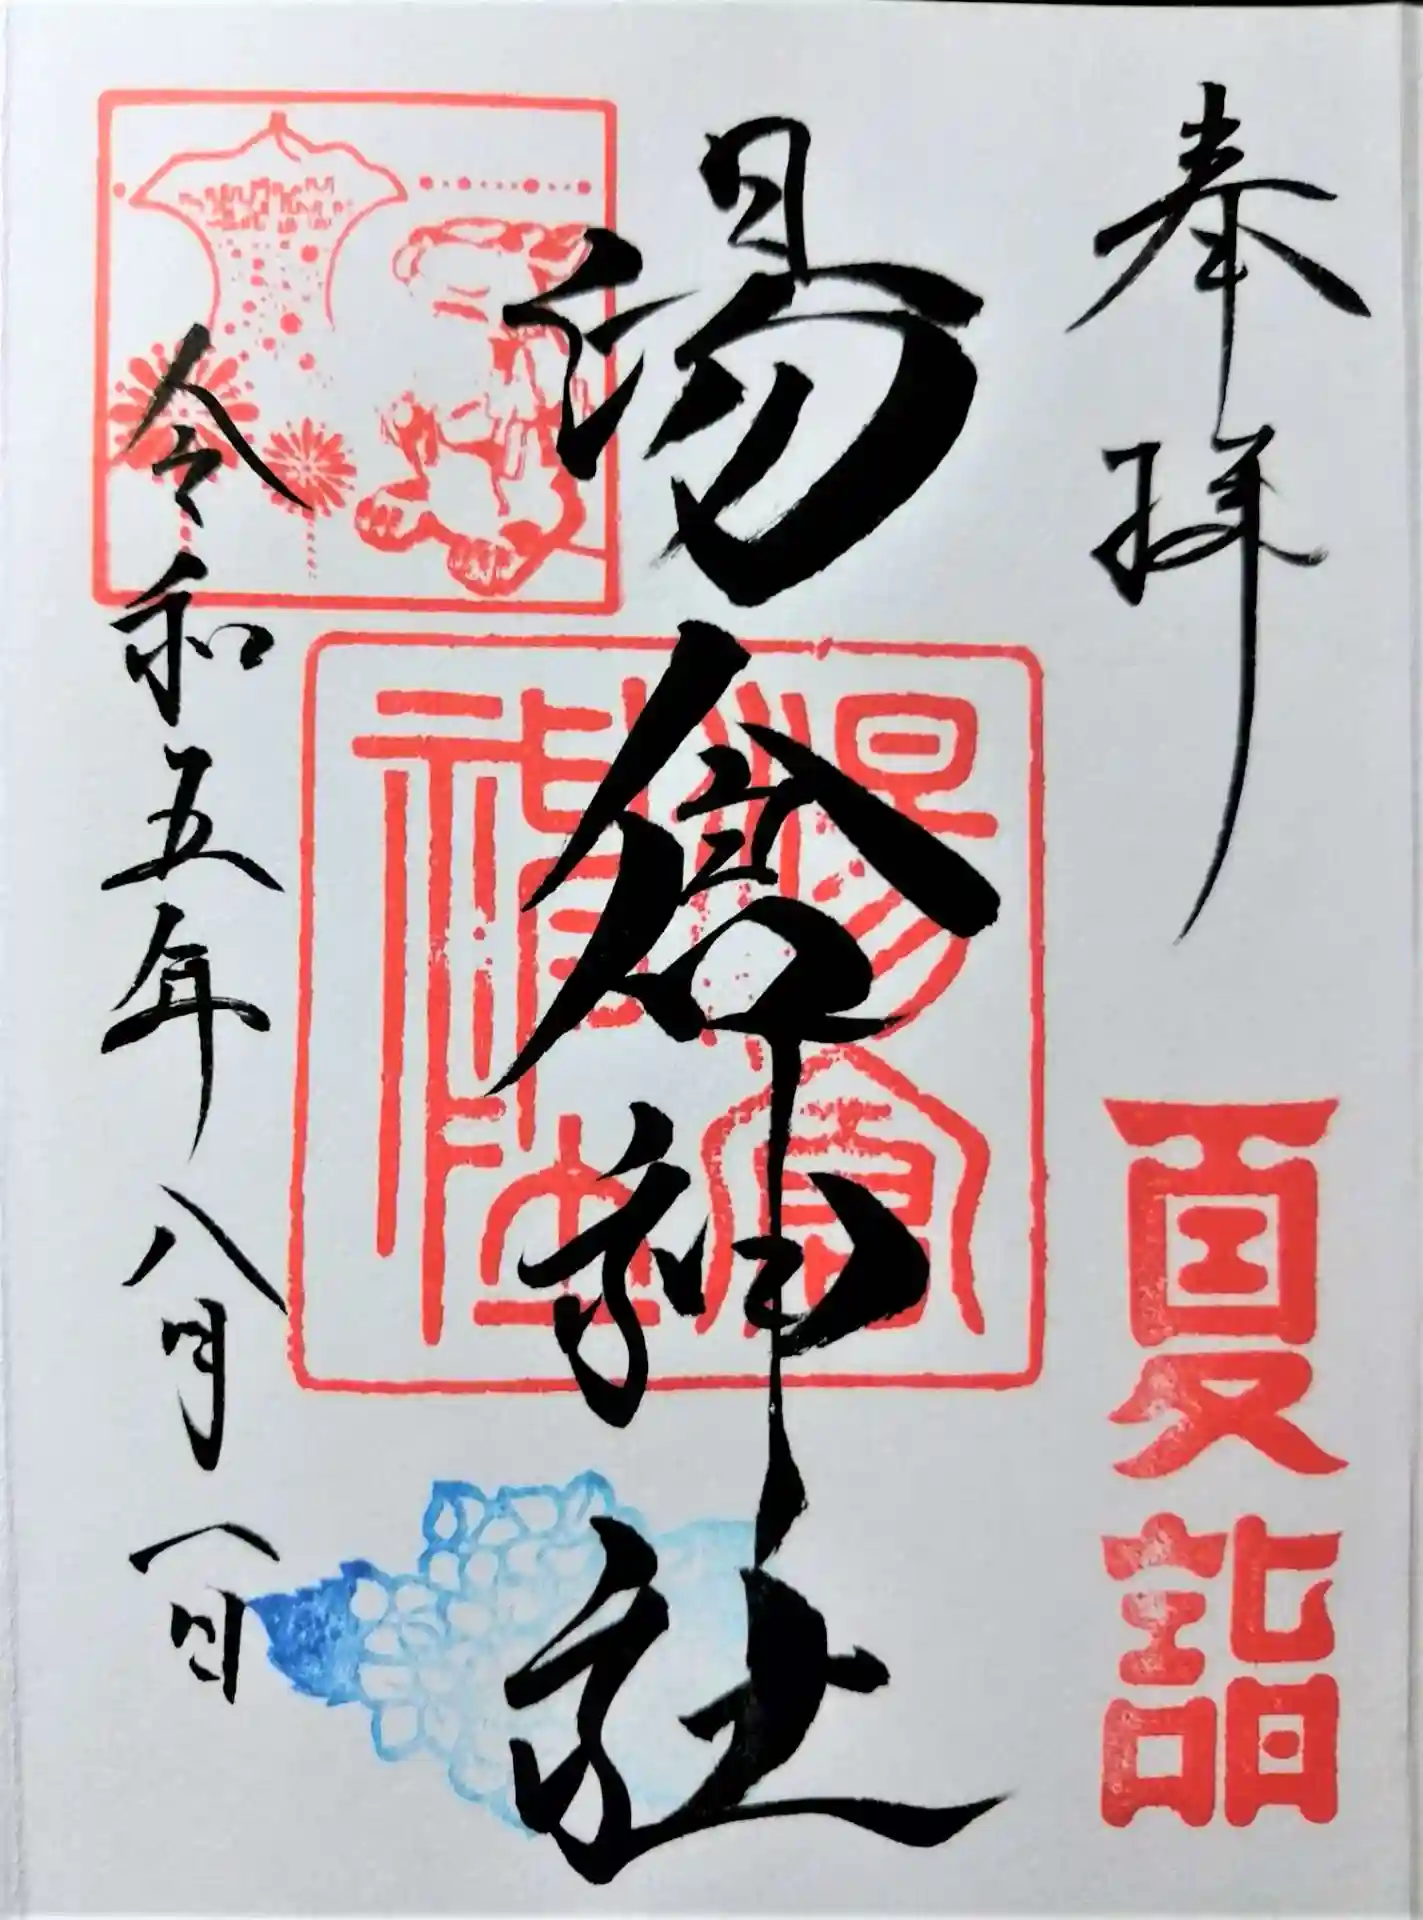 奉拝
夏詣
湯倉神社
湯倉
神社
令和五年八月一日